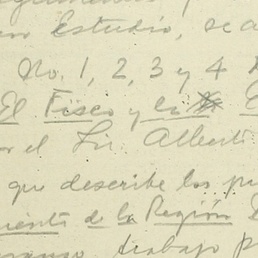 en Estudio, se a
No. 1, 2, 3 y 4
El Fisco y la
por el Sr. Alberti
que describe los pu
miento de la Región
trabajo p